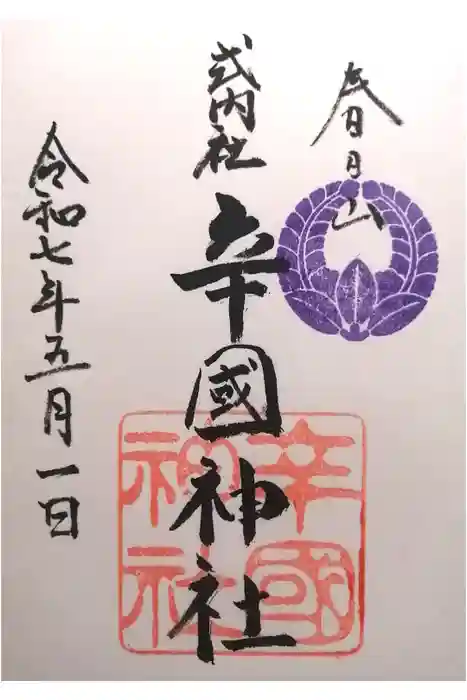 春日山
式内社
辛國神社
令和七年五月一日
辛國
神社